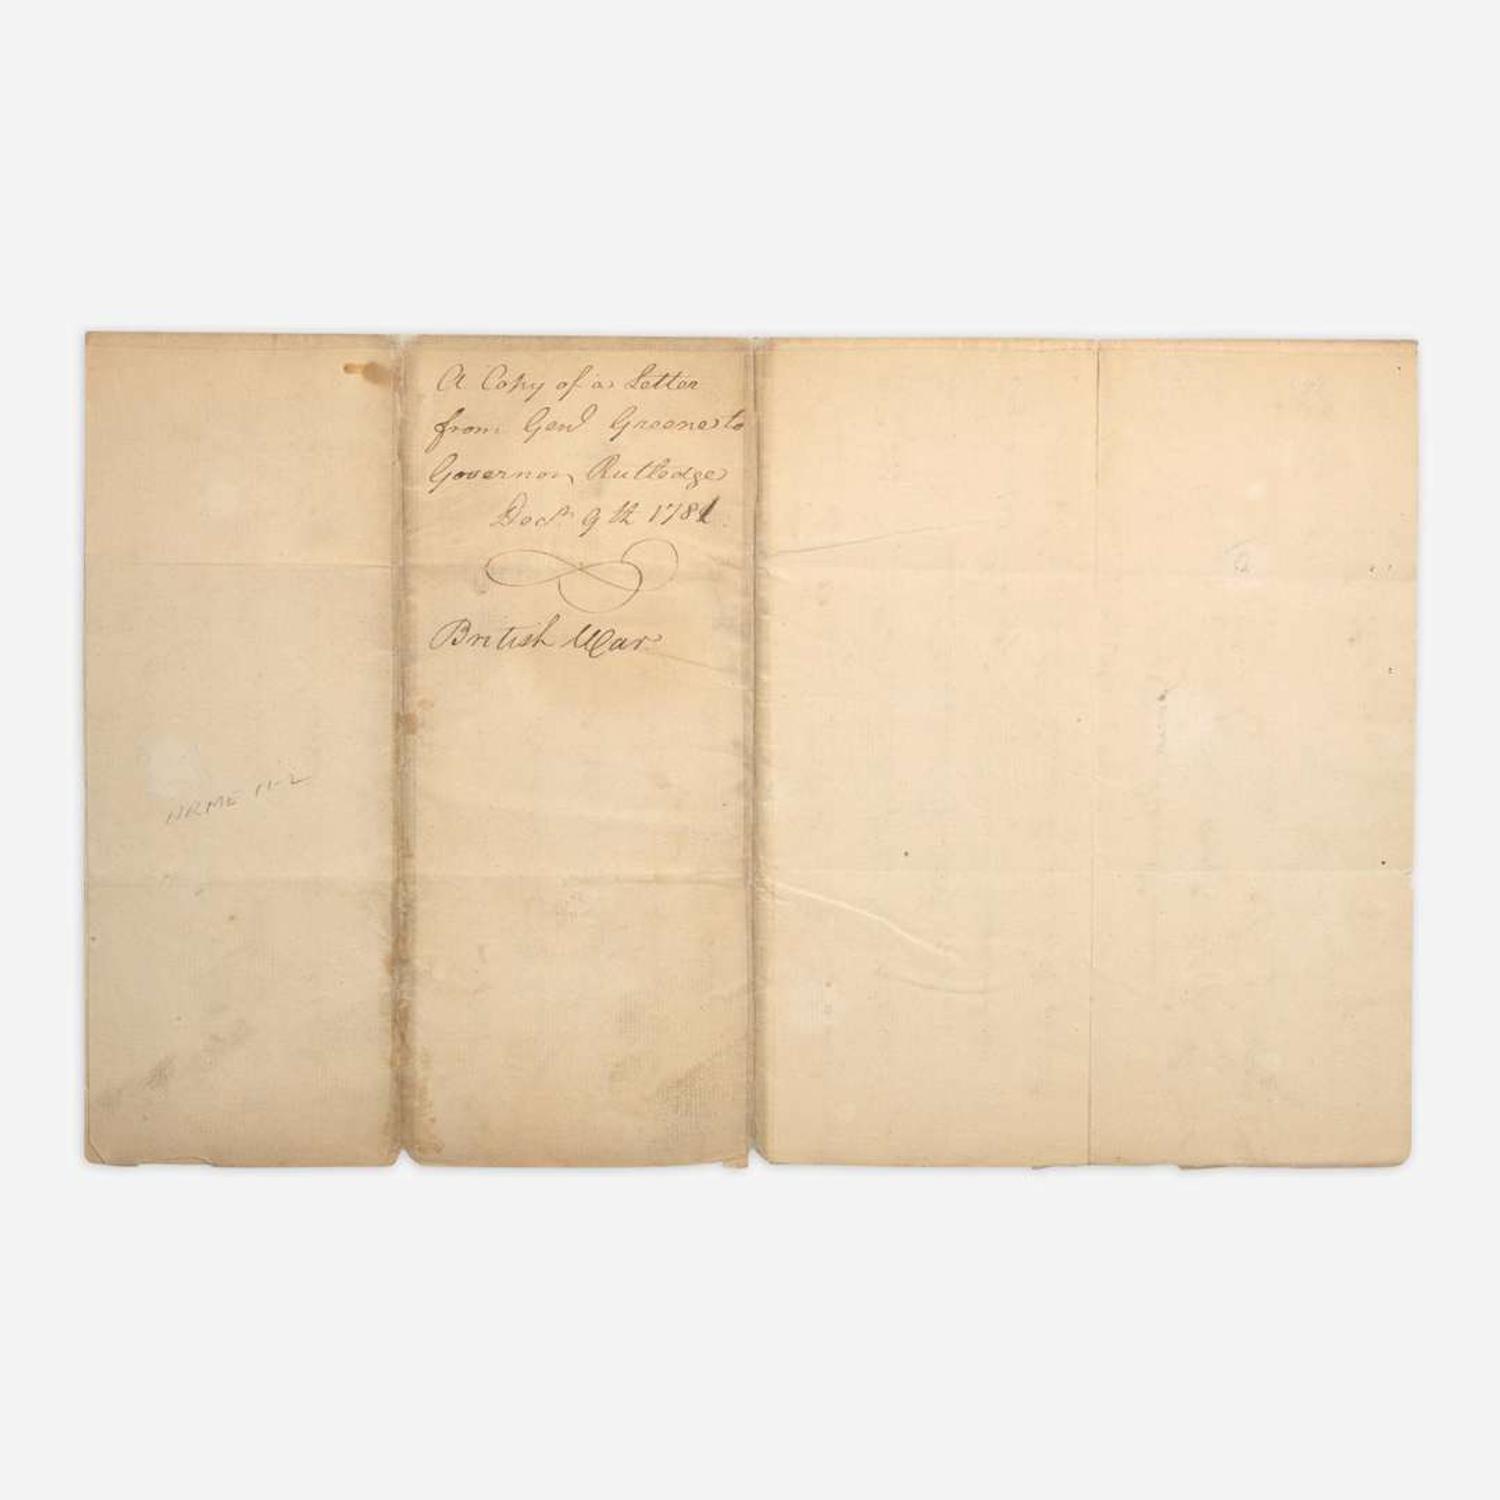 A Copy of a Letter
from Genl Greene to
Governor Rutledge
Decr 9th 1781
British War